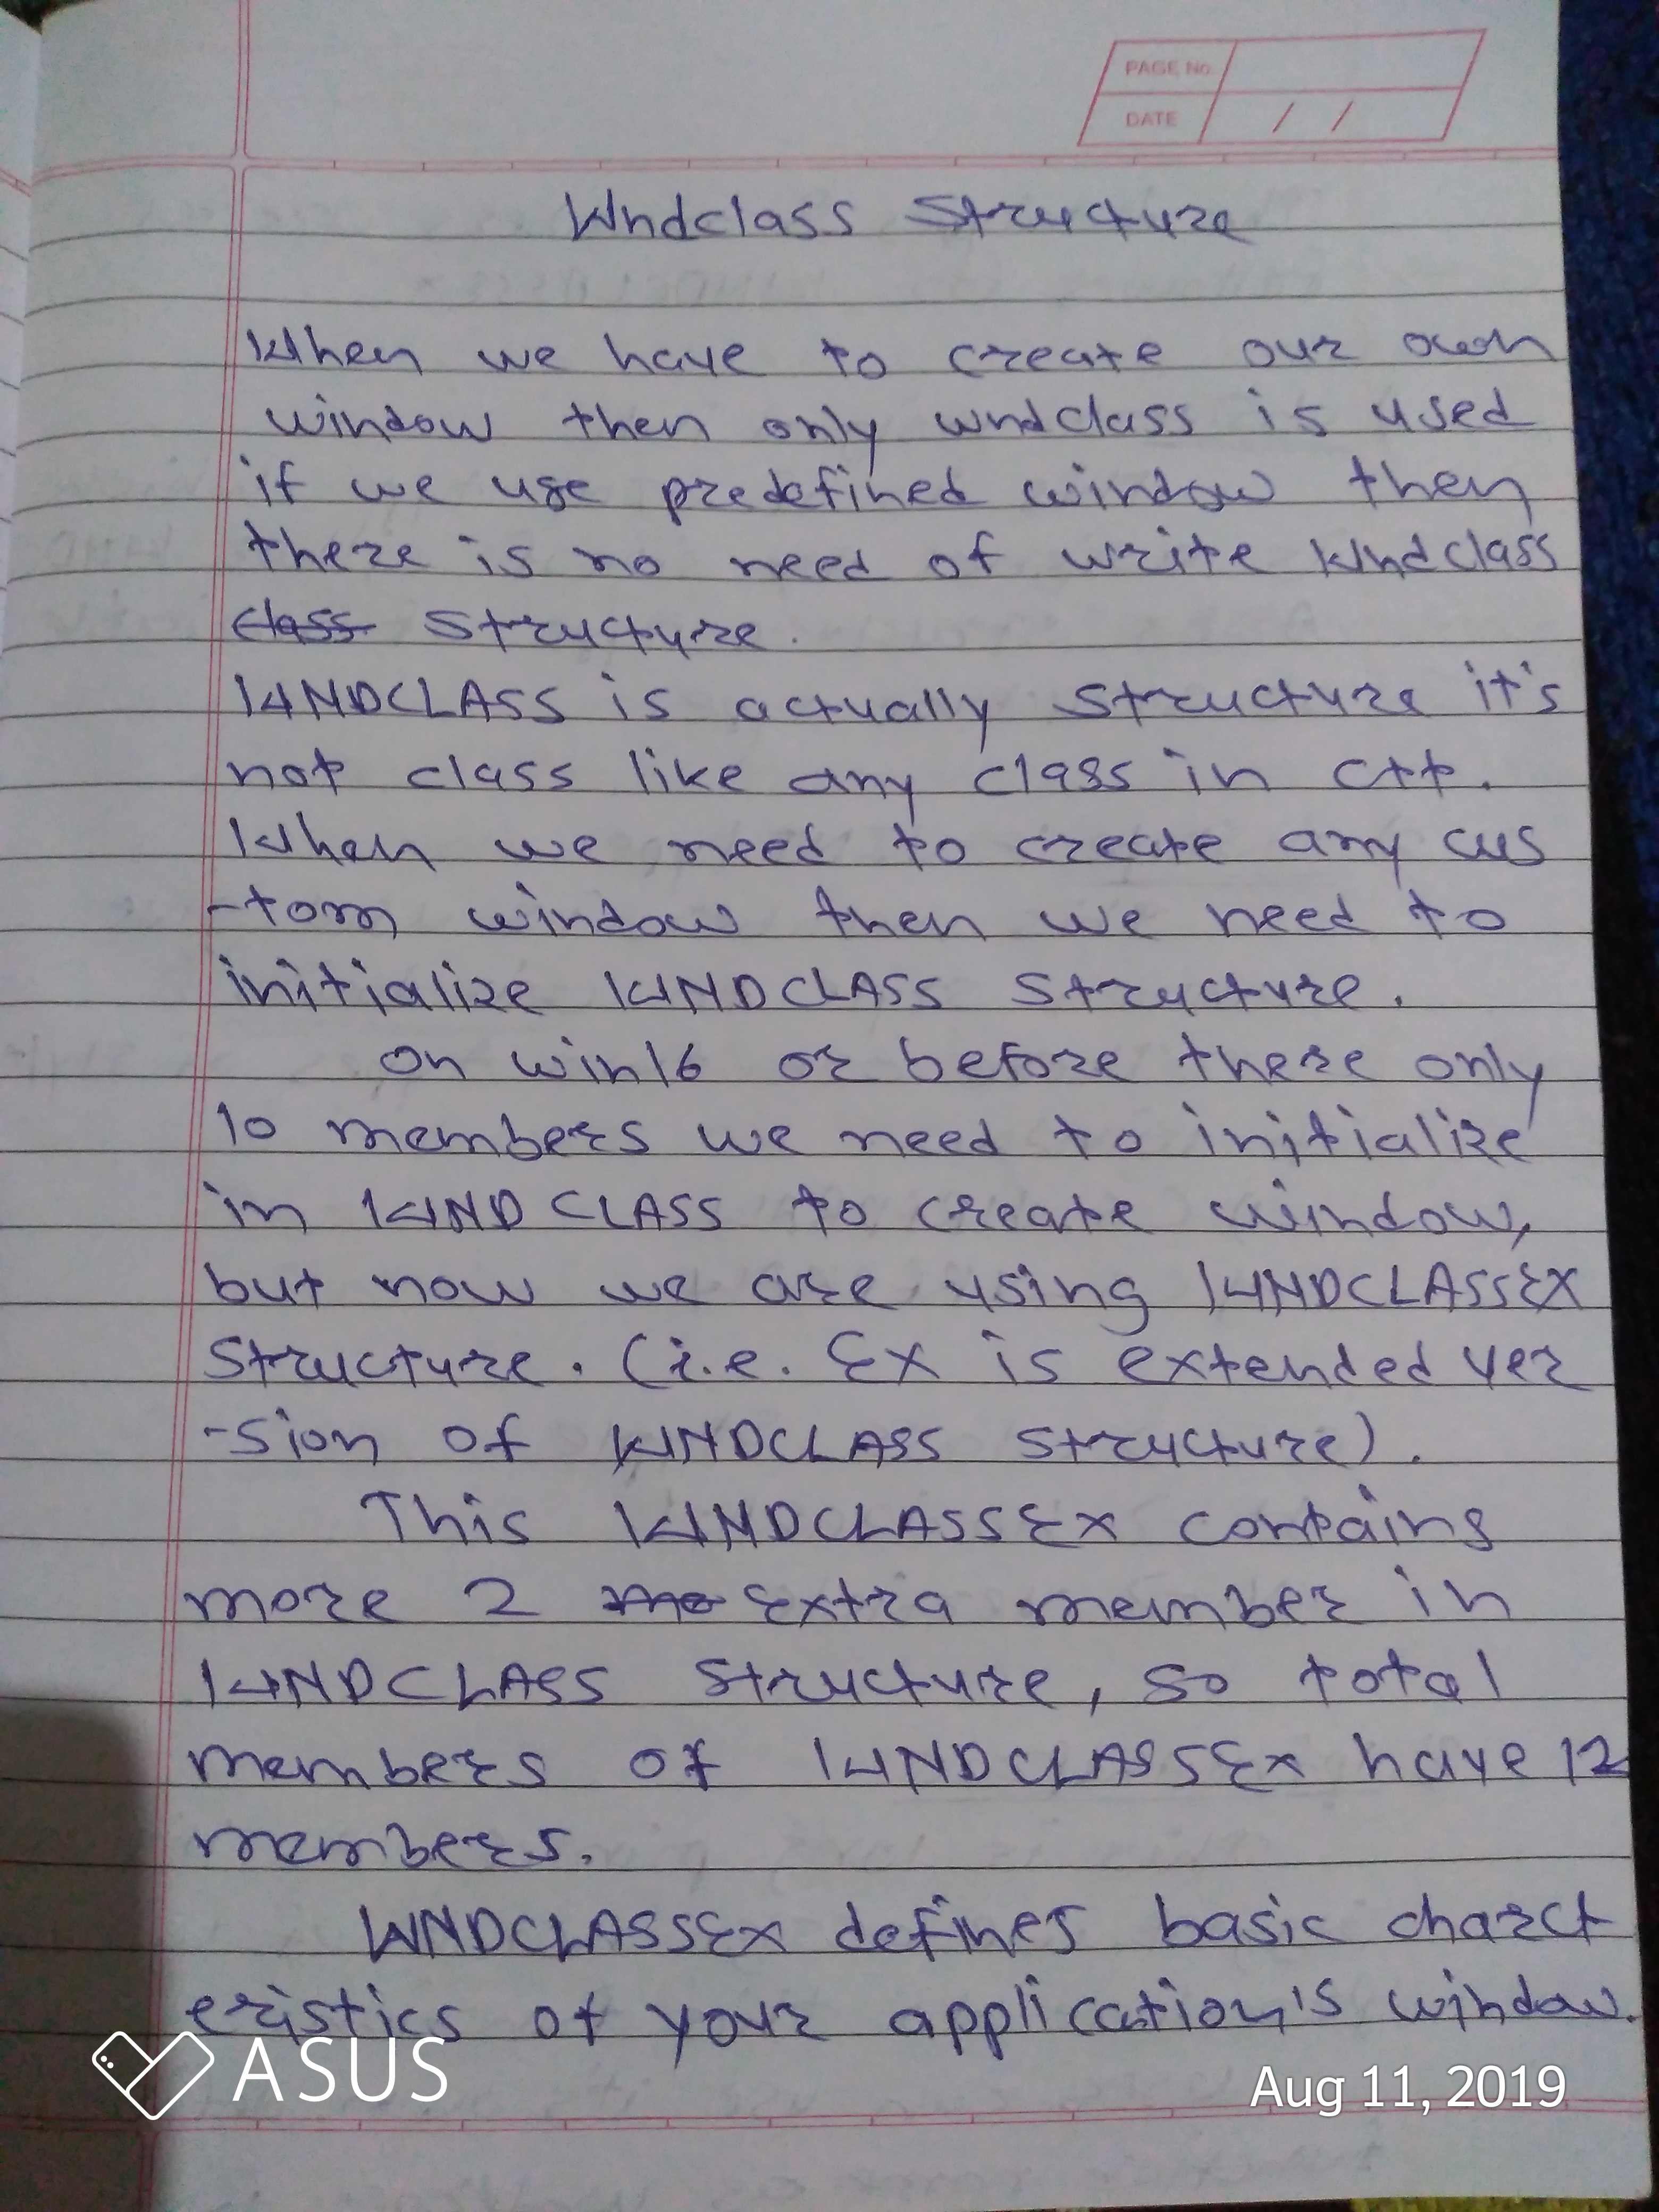 PAGE No.
DATE / /
Wndclass Structure
When we have to create our own
window then only wndclass is used
if we use predefined window then
there is no need of write Wndclass
class structure.
WNDCLASS is actually structure it's
not class like any class in C++.
When we need to create any cus
-tom window then we need to
initialize WNDCLASS structure.
on win16 or before these only
10 members we need to initialize
in WNDCLASS to create window,
but now we are using WNDCLASSEX
structure. (i.e. Ex is extended ver
-sion of WNDCLASS structure).
This WNDCLASSEX contains
more 2 mo Extra member in
WNDCLASS structure, so total
members of WNDCLASSEx have 12
members.
WNDCLASSEx defines basic charct
eristics of your application's window.
ASUS
Aug 11, 2019